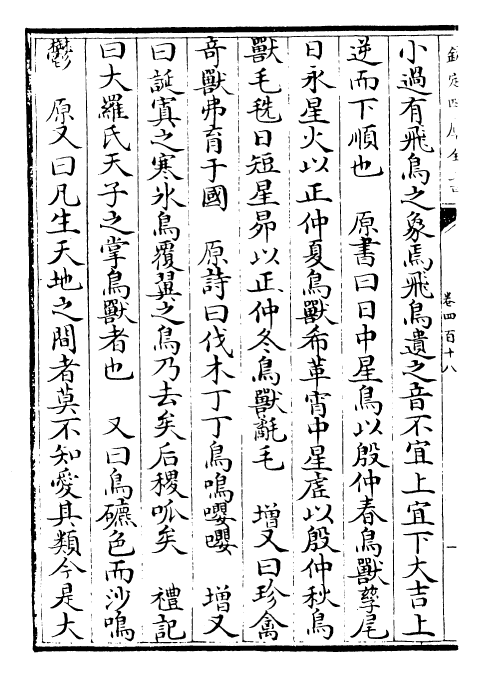 欽定四庫全書
卷四百十八
一
小過有飛鳥之象焉飛鳥遺之音不宜上宜下大吉上
逆而下順也　原書曰日中星鳥以殷仲春鳥獸孳尾
日永星火以正仲夏鳥獸希革宵中星虛以殷仲秋鳥
獸毛毨日短星昴以正仲冬鳥獸氄毛　增又曰珍禽
奇獸弗育于國　原詩曰伐木丁丁鳥鳴嚶嚶　增又
曰誕寘之寒氷鳥覆翼之鳥乃去矣后稷呱矣　禮記
曰大羅氏天子之掌鳥獸者也　又曰鳥皫色而沙鳴
鬱　原又曰凡生天地之間者莫不知愛其類今是大